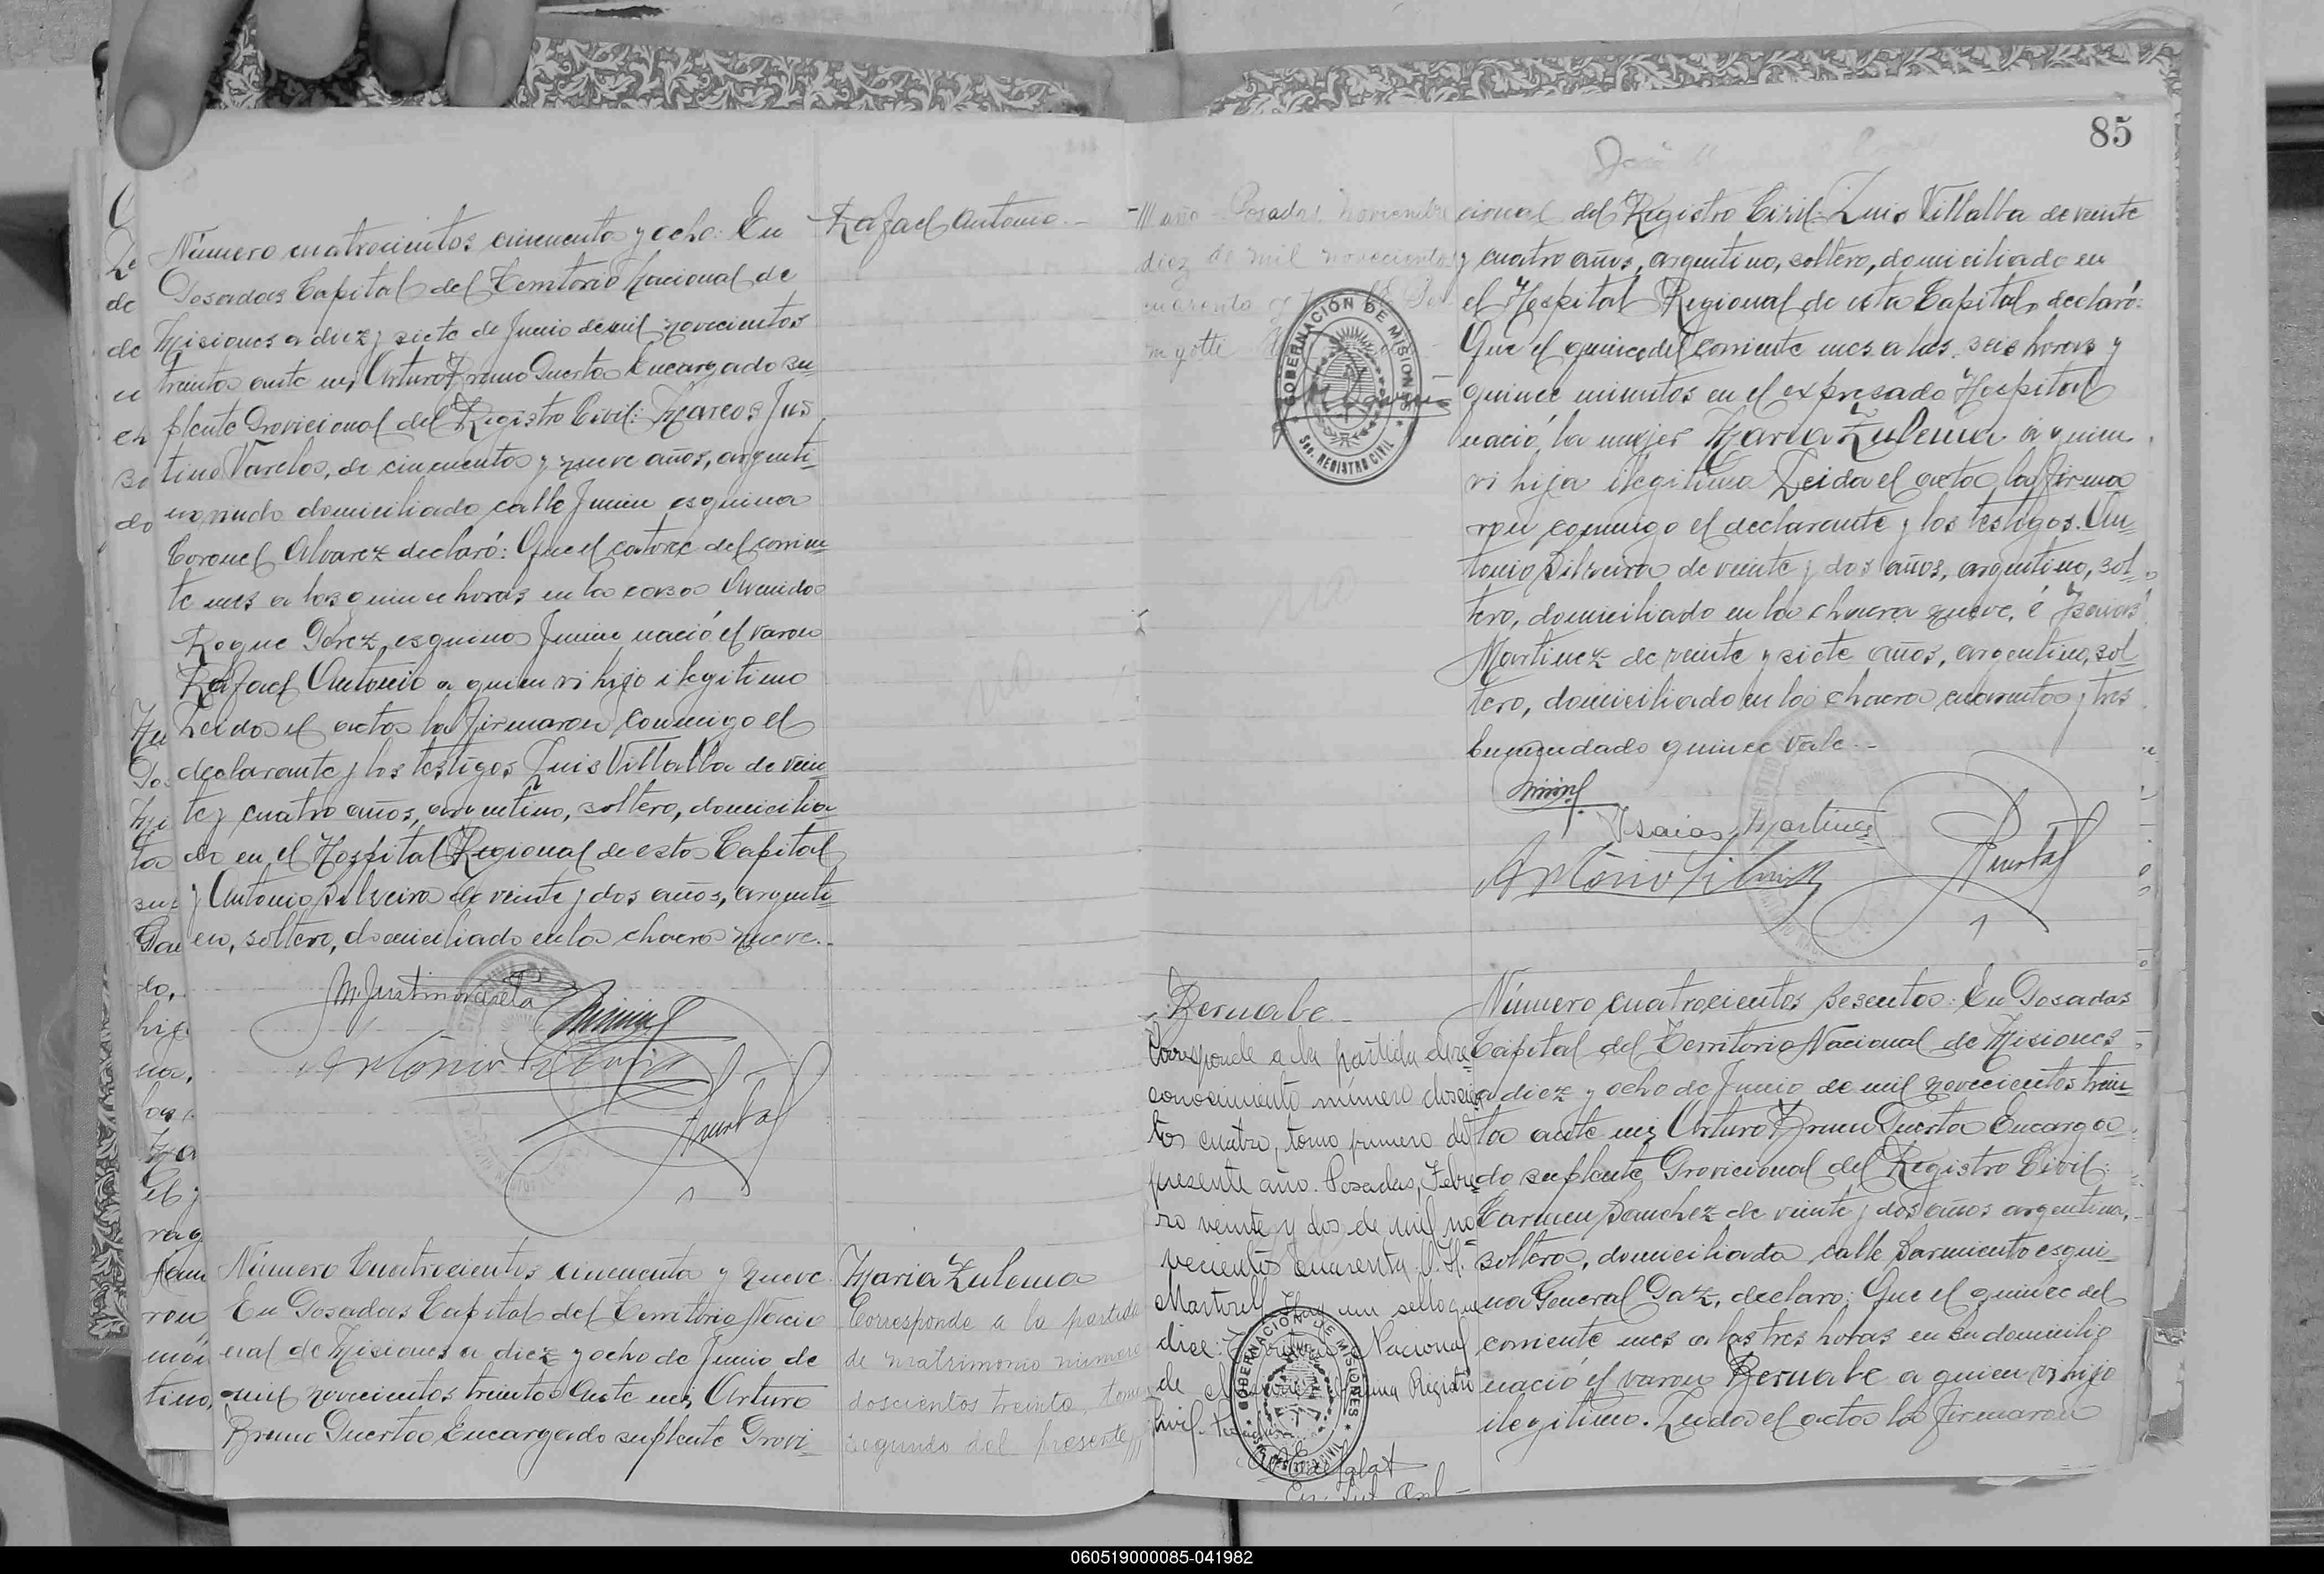 Número cuatrocientos cincuenta y ocho: En
Posadas Capital del Territorio Nacional de
Misiones a diez y siete de Junio de mil novecientos
treinta ante mi, Arturo Bruno Puerta Encargado su-
plente Provicional del Registro Civil: Marcos Jus
tino Varela, de cincuenta y nueve años, argenti-
no, viudo domiciliado calle Junin esquina
Coronel Alvarez declaró: Que el catorce del corrien-
te mes a las quince horas en la casa Avenida
Roque Perez, esquina Junin nació el varon
Rafael Antonio a quien vi hijo ilegitimo
Leida el acta la firmaron conmigo el
declarante y los testigos Luis Villalba de vein-
te y cuatro años, argentino, soltero, domicilia-
do en el Hospital Regional de esta Capital
y Antonio Silveira de veinte y dos años, argenti-
no, soltero, domiciliado en la chacra nueve.-
Rafael Antonio.-
M. Justino Varela
Antonio Silveira
Puerta
Número Cuatrocientos cincuenta y nueve.
En Posadas Capital del Territorio Nacio
nal de Misiones a diez y ocho de Junio de
mil novecientos treinta ante mi, Arturo
Bruno Puerta, Encargado suplente Provi-
Maria Zulema
Corresponde a la partida
de matrimonio número
doscientos treinta, tomo
segundo del presente
85
año - Posadas, noviembre
diez de mil novecientos
cuarenta y
GOBERNACIÓN DE MISIONES
Sec. REGISTRO CIVIL
cional del Registro Civil: Luis Villalba de veinte
y cuatro años, argentino, soltero, domiciliado en
el Hospital Regional de esta Capital, declaró:
Que el quince del corriente mes a las seis horas y
quince minutos en el expresado Hospital
nació la mujer Maria Zulema a quien
vi hija ilegitima Leida el acta la firma
ron conmigo el declarante y los testigos. An-
tonio Silveira de veinte y dos años, argentino, sol-
tero, domiciliado en la chacra nueve, é Isaias
Martinez de veinte y siete años, argentino, sol-
tero, domiciliado en la chacra cuarenta y tres
Enmendado quince Vale.-
Isaias Martinez
Antonio Silveira
Puerta
Bernabe.
Corresponde a la partida de re-
conocimiento número doscien-
tos cuatro, tomo primero del
presente año. Posadas, Febre-
ro veinte y dos de mil no-
vecientos cuarenta.
Martorell Hay un sello que
dice: Territorio Nacional
de Misiones Registro
Civil - Posadas
GOBERNACIÓN DE MISIONES
Número cuatrocientos sesenta: En Posadas
Capital del Territorio Nacional de Misiones
a diez y ocho de Junio de mil novecientos trein-
ta ante mi, Arturo Bruno Puerta Encarga-
do suplente Provicional del Registro Civil:
Carmen Sanchez de veinte y dos años argentina,
soltera, domiciliada calle Sarmiento esqui-
na General Paz, declaro: Que el quince del
corriente mes a las tres horas en su domicilio
nació el varon Bernabe a quien vi hijo
ilegitimo. Leida el acta la firmaron
060519000085-041982